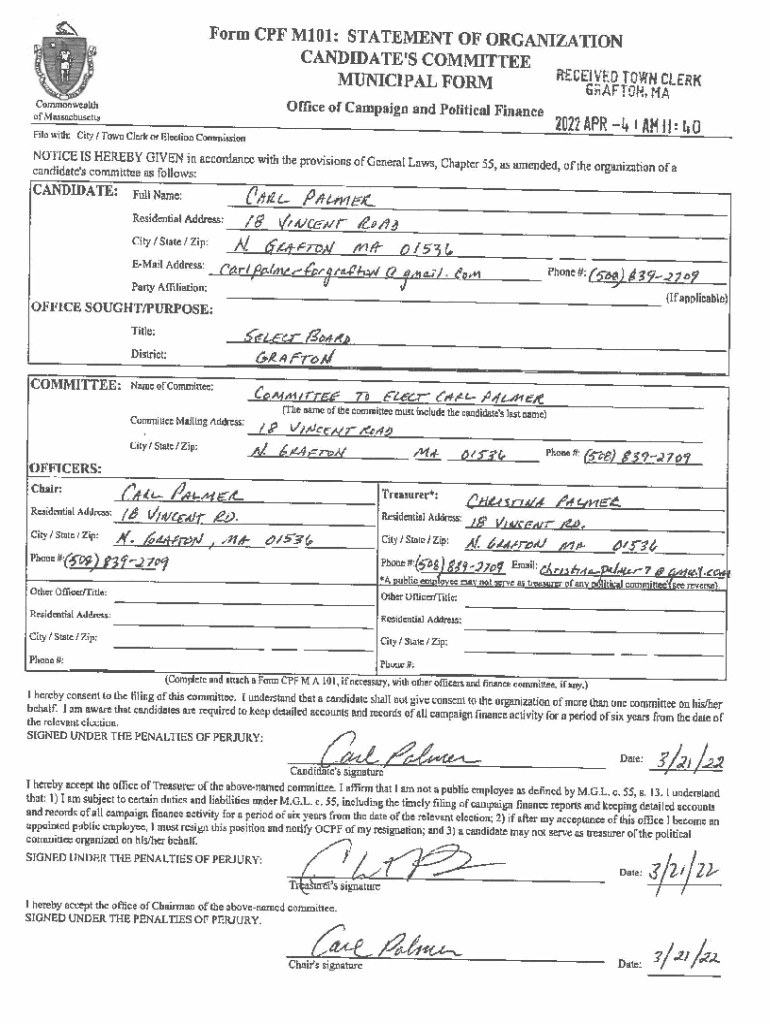 Form CPF M101: STATEMENT OF ORGANIZATION
CANDIDATE'S COMMITTEE
MUNICIPAL FORM
RECEIVED TOWN CLERK
GRAFTON, MA
Commonwealth
of Massachusetts
Office of Campaign and Political Finance
2022 APR -4 AM 11:40
File with: City / Town Clerk or Election Commission
NOTICE IS HEREBY GIVEN in accordance with the provisions of General Laws, Chapter 55, as amended, of the organization of a
candidate's committee as follows:
CANDIDATE: Full Name: CARL PALMER
Residential Address: 18 VINCENT ROAD
City / State / Zip: N. GRAFTON MA 01536
E-Mail Address: carlpalmerforgrafton@gmail.com Phone #: (508) 839-2709
Party Affiliation: (If applicable)
OFFICE SOUGHT/PURPOSE:
Title: SELECT BOARD
District: GRAFTON
COMMITTEE: Name of Committee: COMMITTEE TO ELECT CARL PALMER
(The name of the committee must include the candidate's last name)
Committee Mailing Address: 18 VINCENT ROAD
City / State / Zip: N. GRAFTON MA 01536 Phone #: (508) 839-2709
OFFICERS:
Chair: CARL PALMER Treasurer*: CHRISTINA PALMER
Residential Address: 18 VINCENT RD. Residential Address: 18 VINCENT RD.
City / State / Zip: N. GRAFTON, MA 01536 City / State / Zip: N. GRAFTON MA 01536
Phone #: (508) 839-2709 Phone #: (508) 839-2709 Email: christina.palmer7@gmail.com
*A public employee may not serve as treasurer of any political committee (see reverse)
Other Officer/Title: Other Officer/Title:
Residential Address: Residential Address:
City / State / Zip: City / State / Zip:
Phone #: Phone #:
(Complete and attach a Form CPF M A 101, if necessary, with other officers and finance committee, if any.)
I hereby consent to the filing of this committee. I understand that a candidate shall not give consent to the organization of more than one committee on his/her
behalf. I am aware that candidates are required to keep detailed accounts and records of all campaign finance activity for a period of six years from the date of
the relevant election.
SIGNED UNDER THE PENALTIES OF PERJURY:
Carl Palmer Date: 3/21/22
Candidate's signature
I hereby accept the office of Treasurer of the above-named committee. I affirm that I am not a public employee as defined by M.G.L. c. 55, s. 13. I understand
that: 1) I am subject to certain duties and liabilities under M.G.L. c. 55, including the timely filing of campaign finance reports and keeping detailed accounts
and records of all campaign finance activity for a period of six years from the date of the relevant election; 2) if after my acceptance of this office I become an
appointed public employee, I must resign this position and notify OCPF of my resignation; and 3) a candidate may not serve as treasurer of the political
committee organized on his/her behalf.
SIGNED UNDER THE PENALTIES OF PERJURY:
Date: 3/21/22
Treasurer's signature
I hereby accept the office of Chairman of the above-named committee.
SIGNED UNDER THE PENALTIES OF PERJURY.
Carl Palmer
Chair's signature Date: 3/21/22